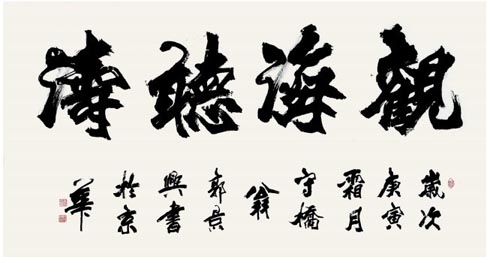 觀海聽濤
歲次
庚寅
霜月
守橋
翁
郭景
興書
於京
華